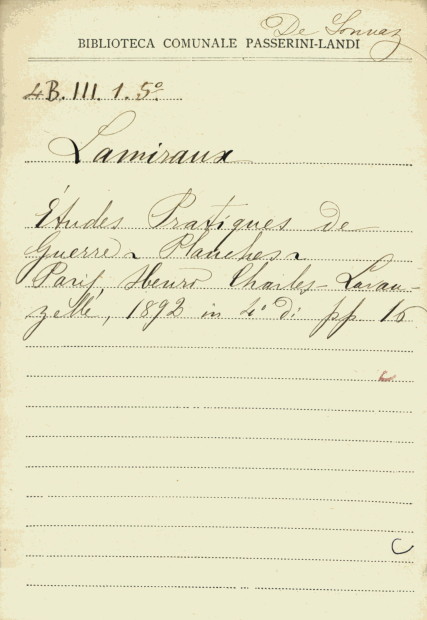 De Sonnaz
BIBLIOTECA COMUNALE PASSERINI-LANDI
4B. III. 1. 5º
Lamiraux
Études Pratiques de
Guerre ~ Planches ~
Paris, Henri Charles-Lavau-
zelle, 1892 in 4º di pp 16
C